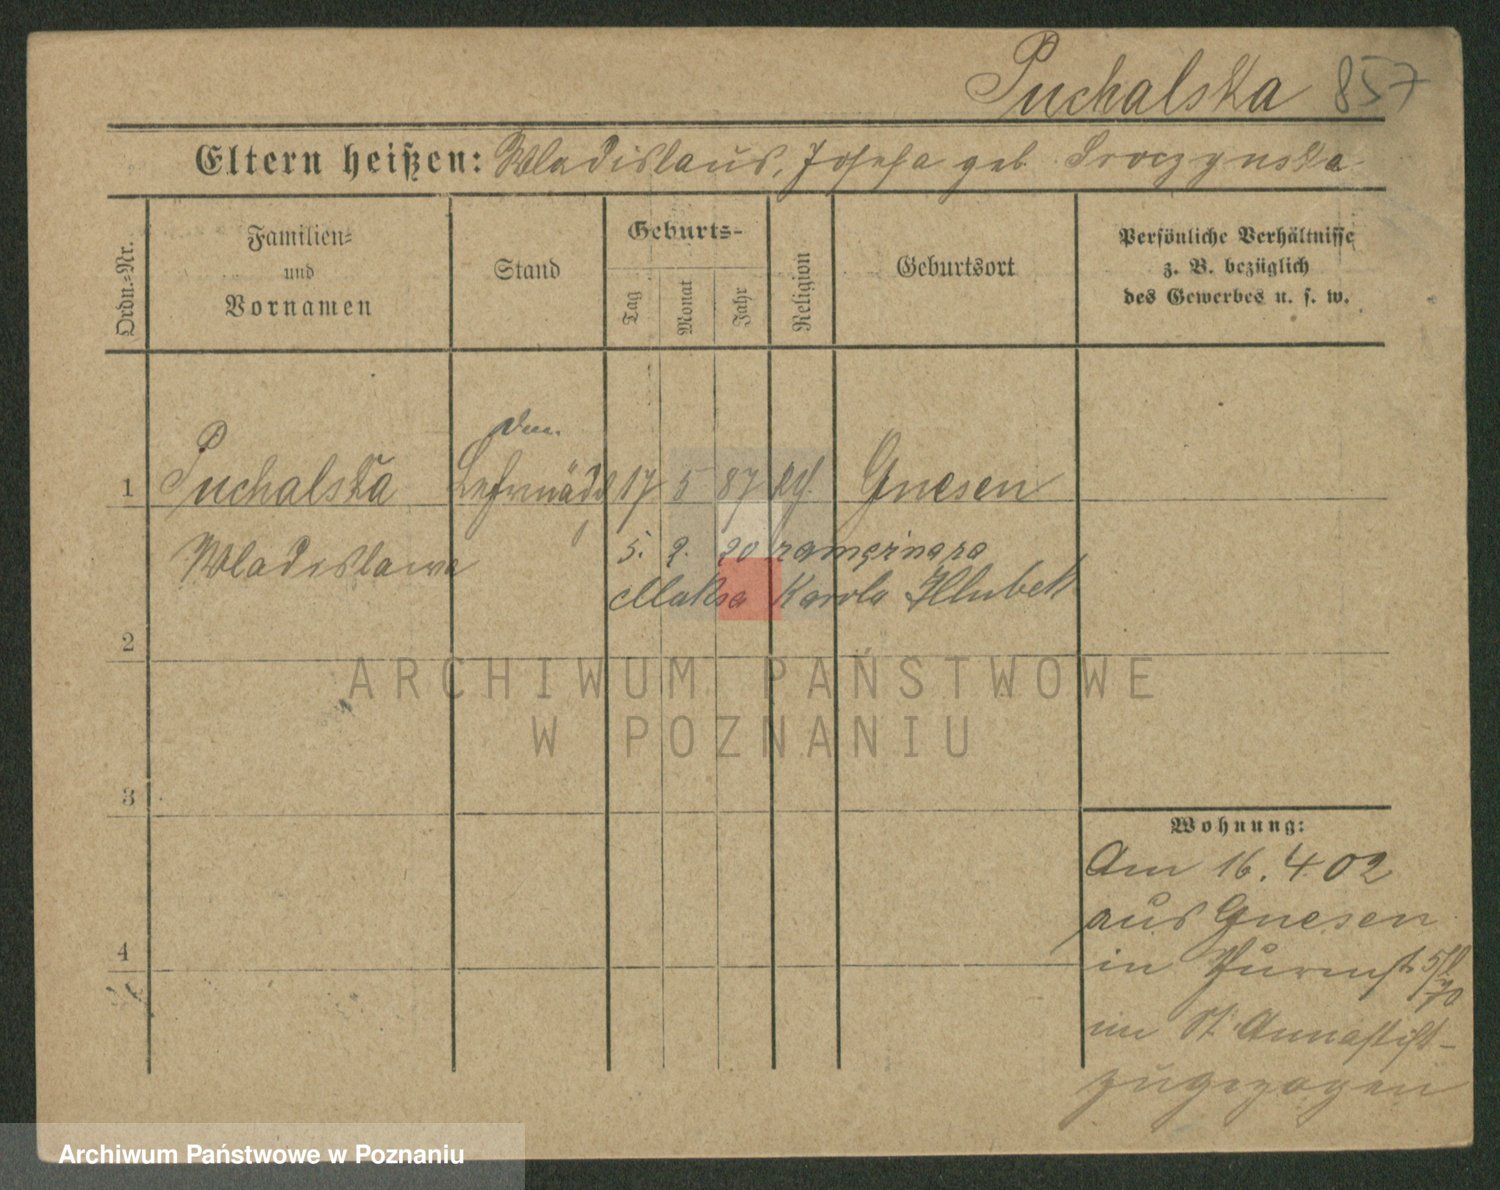 Puchalska 857
Eltern heißen: Wladislaus, Josefa geb. Sroczynska
Ordn.-Nr.
Familien-
und
Vornamen
Stand
Geburts-
Tag
Monat
Jahr
Religion
Geburtsort
Persönliche Verhältnisse
z. B. bezüglich
des Gewerbes u. s. w.
1 Puchalska 17 5 87 Gnesen
Wladislawa
5. 2. 20
Maksa Karola Hlubek
2
ARCHIWUM PAŃSTWOWE
W POZNANIU
3
Wohnung:
Am 16. 4 02
aus Gnesen
in
4
im St. Annastift
zugezogen
Archiwum Państwowe w Poznaniu